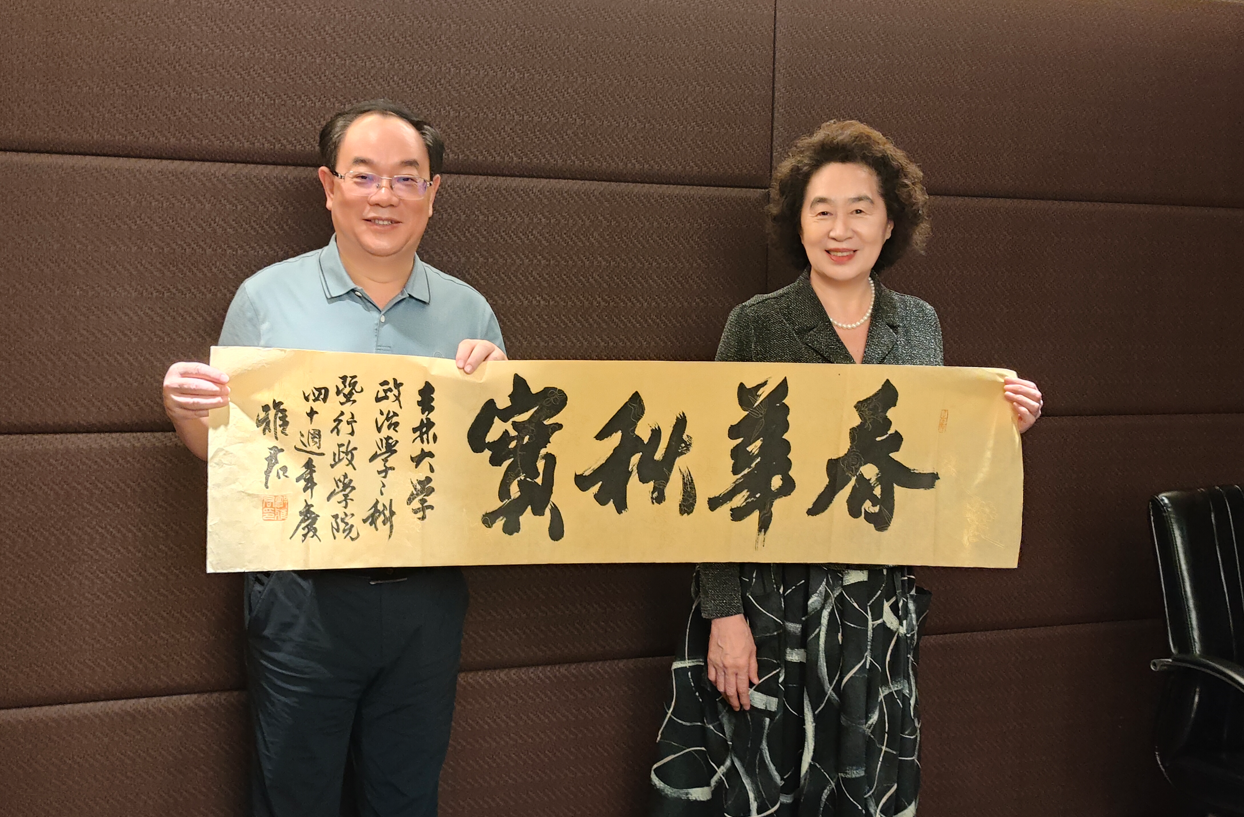 春華秋實
吉林大学
政治學々科
暨行政學院
四十週年慶
雅君